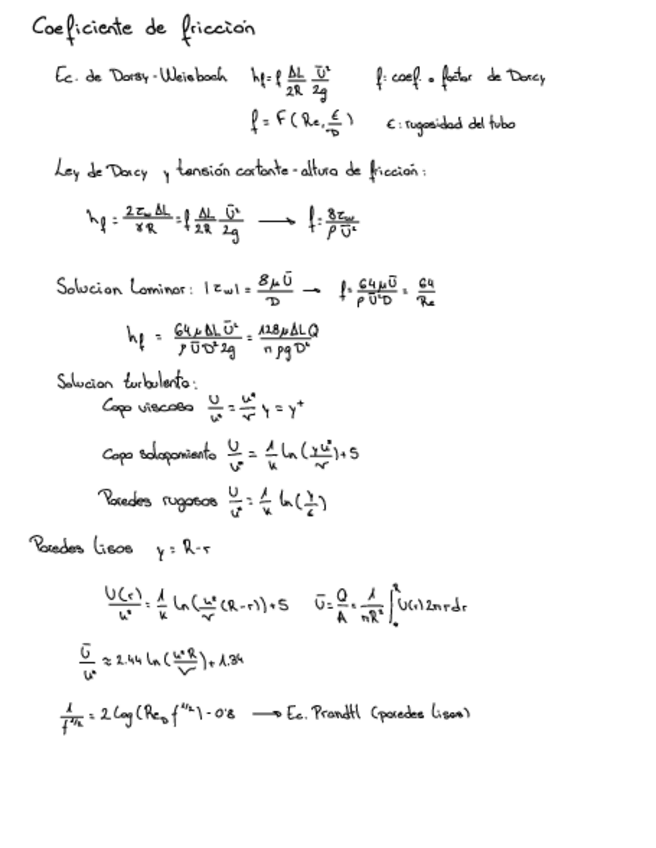 Coeficiente de fricción
Ec. de Darsy-Weisbach hf = f ΔL/2R Ū²/2g f: coef. o factor de Darcy
f = F(Re, ε/D) ε: rugosidad del tubo
Ley de Darcy y tensión cortante-altura de fricción:
hf = 2τw ΔL/γR = f ΔL/2R Ū²/2g → f = 8τw/ρŪ²
Solucion Laminar: |τw| = 8μŪ/D → f = 64μŪ/ρŪ²D = 64/Re
hf = 64μΔLŪ²/ρŪD²2g = 128μΔLQ/πρgD⁴
Solucion turbulenta:
Capa viscosa U/u* = u*/ν y = y⁺
Capa solapamiento U/u* = 1/k ln(yu*/ν)+5
Paredes rugosas U/u* = 1/k ln(y/ε)
Paredes lisas y = R-r
U(r)/u* = 1/k ln(u*/ν (R-r))+5 Ū = Q/A = 1/πR² ∫₀ᴿ U(r)2πrdr
Ū/u* ≈ 2.44 ln(u*R/ν)+1.34
1/f^1/2 = 2 log(Re_D f^1/2)-0'8 → Ec. Prandtl (paredes lisas)